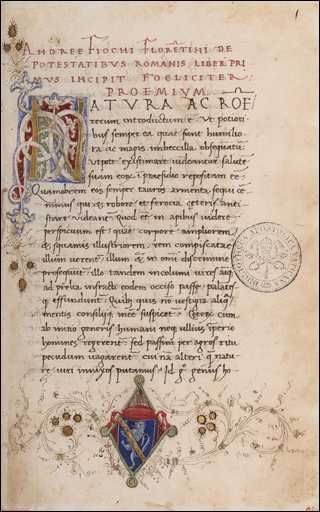 1
ANDREE FIOCHI FLORETINI DE
POTESTATIBUS ROMANIS LIBER PRI
MUS INCIPIT FOELICITER
PROEMIUM
NATURA AC ROE
rerum introductum e. Ut potiori
bus semper ea quae sunt humilio
ra ac magis imbecilla obsequatur
utpote existimare videantur salute
suam eorum praesidio repositam ee.
Quamobrem eos semper tauros armenta sequi cer
nimus qui & robore et ferocia ceteris ante
stare videant. Quod et in apibus videre
perspicuum est quae corpore ampliorem
& squamis illustriorem rem compiscatae
illum verent illum & in omni discrimine
prosequunt. illo tandem incolumi vires
ad prelia infracti eodem occiso passe palates
effundunt. Quibus quis no vestigia
mentis consiliique inee suspicet. Cetera cum
ab initio generis humani neque ullius iperio
homines regerent sed passim per agros ritu
pecudum vagarent cui na alteri natu
re iuri innixos putamus. Id genus ho
BIBLIOTHECA APOSTOLICA VATICANA